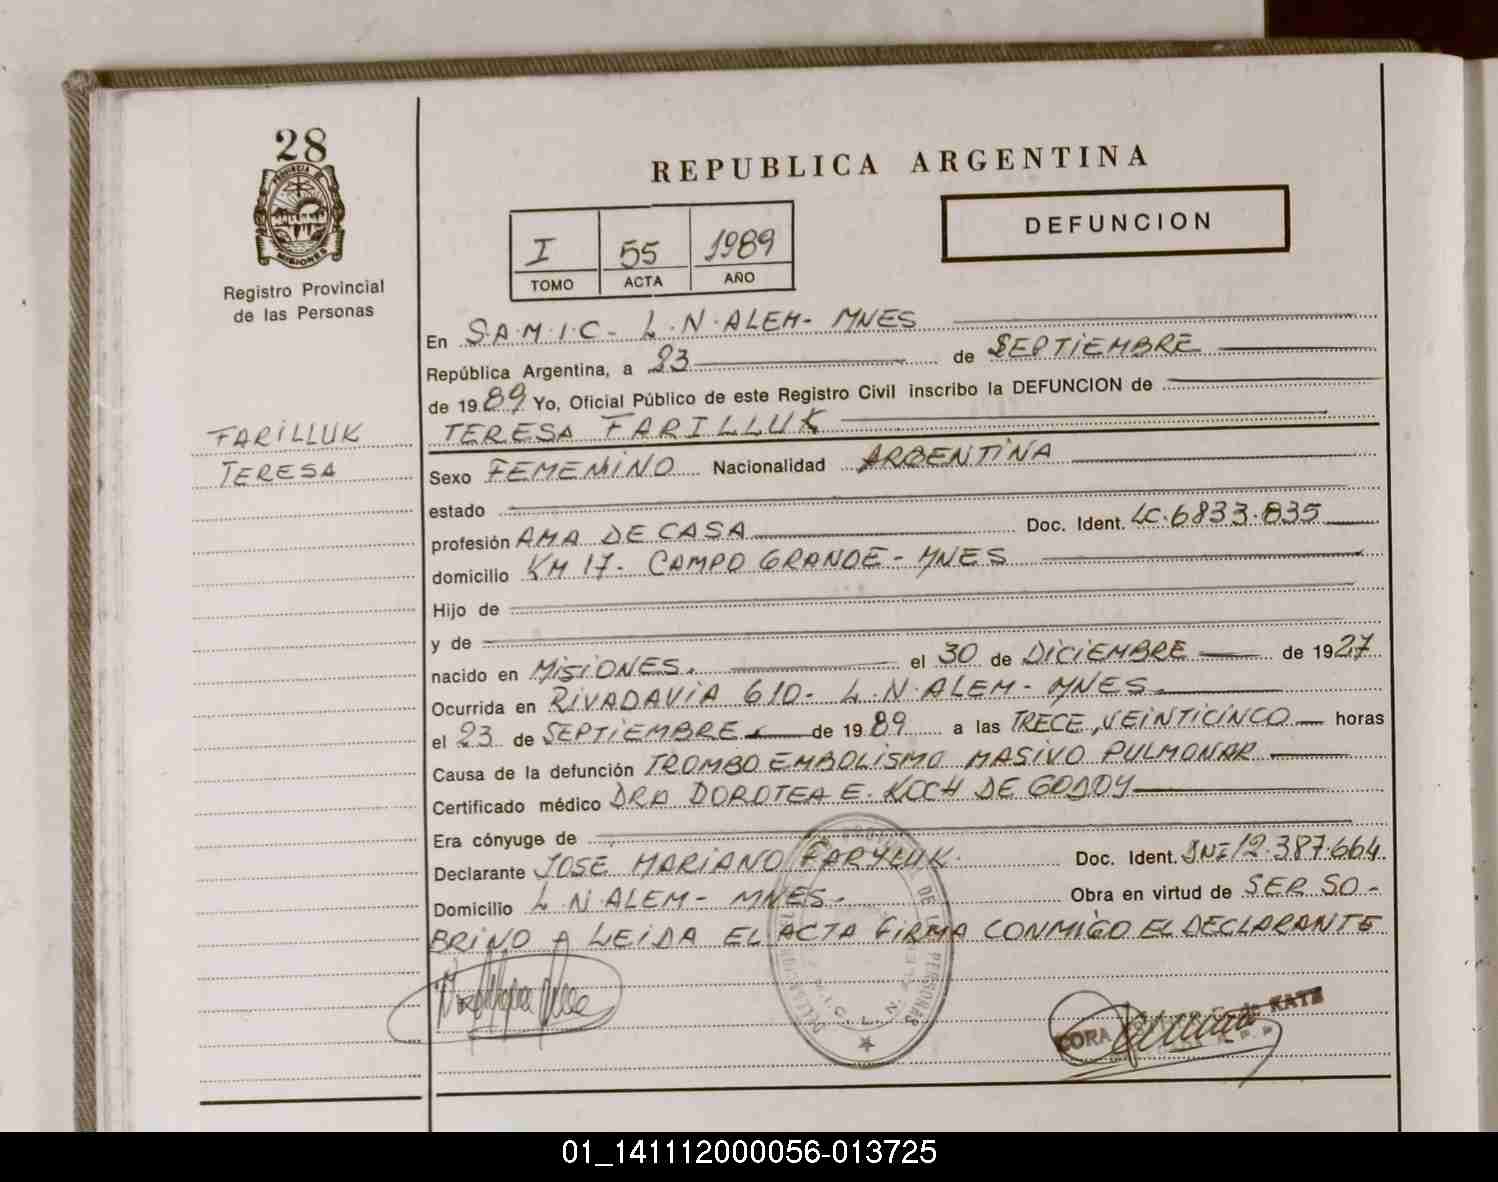 28
PROVINCIA DE
MISIONES
Registro Provincial
de las Personas
REPUBLICA ARGENTINA
DEFUNCION
I 55 1989
TOMO ACTA AÑO
En S.A.M.I.C- L.N.ALEM- MNES
República Argentina, a 23 de SEPTIEMBRE
de 1989 Yo, Oficial Público de este Registro Civil inscribo la DEFUNCION de
FARILLUK
TERESA
TERESA FARILLUK
Sexo FEMENINO Nacionalidad ARGENTINA
estado
profesión AMA DE CASA Doc. Ident. LC.6833.835
domicilio KM 17- CAMPO GRANDE- MNES
Hijo de
y de
nacido en MISIONES. el 30 de DICIEMBRE de 1927
Ocurrida en RIVADAVIA 610- L.N.ALEM- MNES.
el 23 de SEPTIEMBRE de 1989 a las TRECE, VEINTICINCO horas
Causa de la defunción TROMBO EMBOLISMO MASIVO PULMONAR
Certificado médico DRA DOROTEA E. KOCH DE GODOY
Era cónyuge de
Declarante JOSE MARIANO FARYLUK. Doc. Ident. DNI 12.387.664
Domicilio L.N.ALEM- MNES- Obra en virtud de SER SO-
BRINO A LEIDA EL ACTA FIRMA CONMIGO EL DECLARANTE
CORA KATZ
01_141112000056-013725